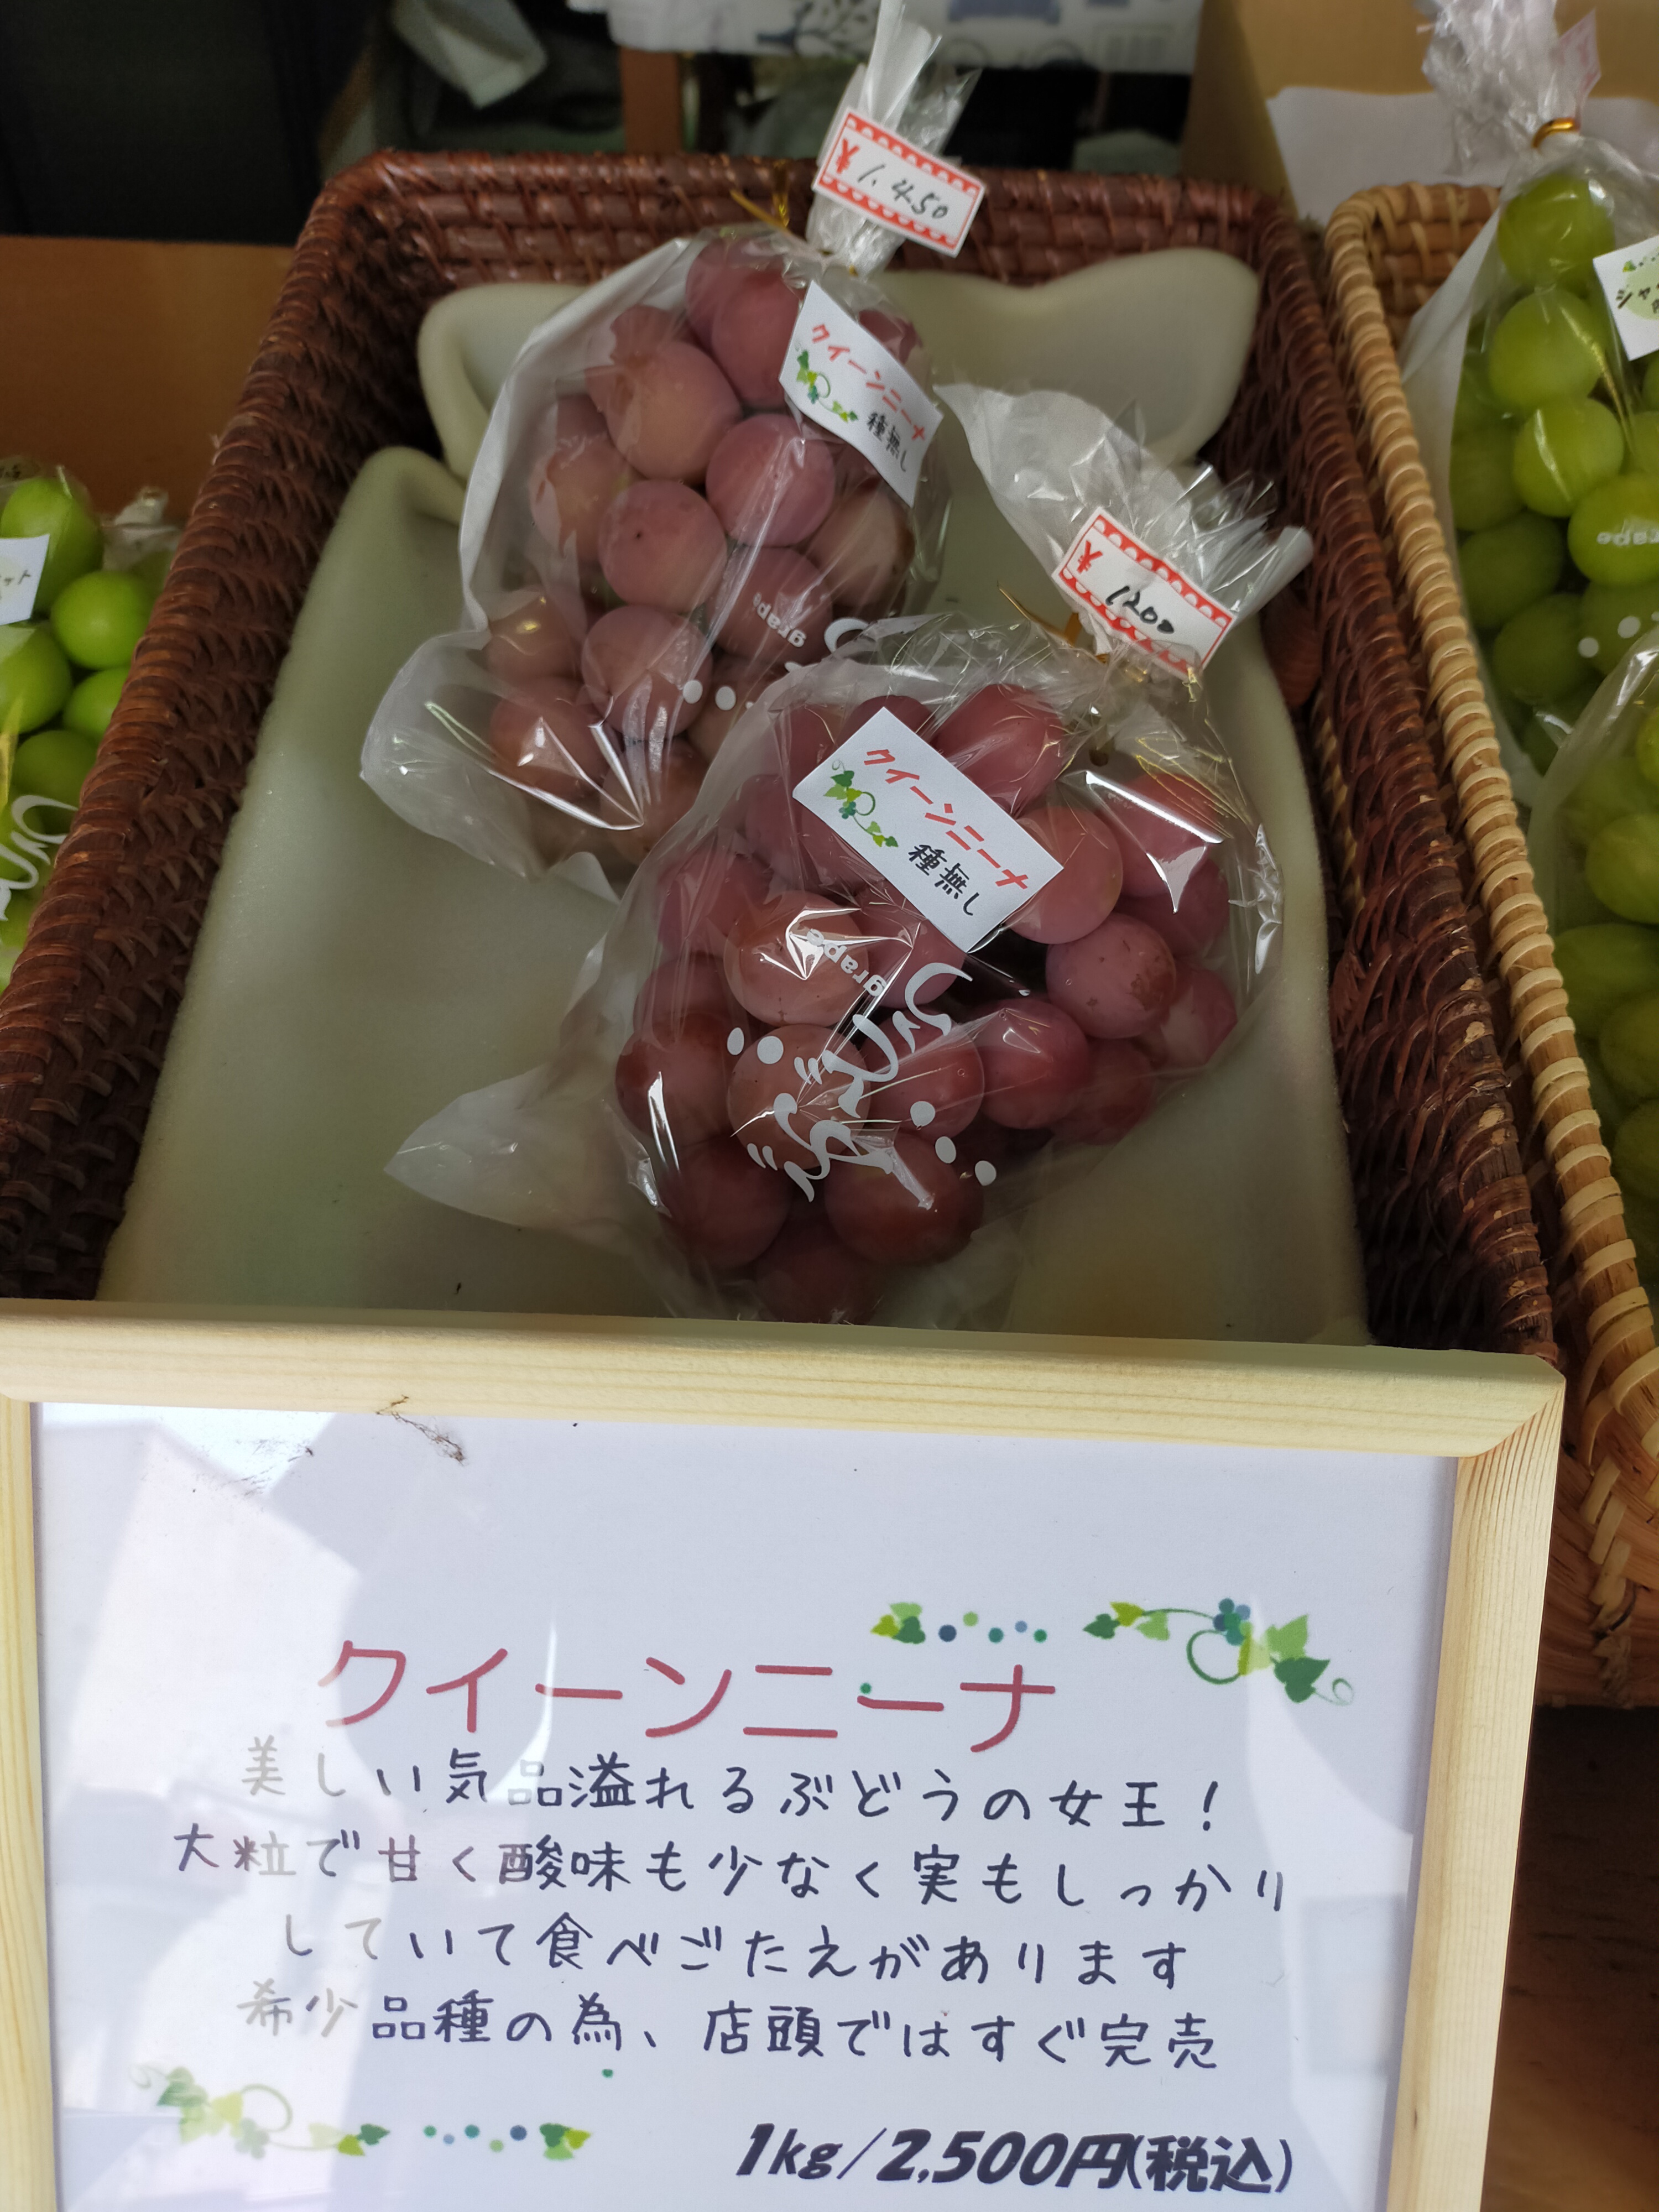 ¥1,450
クイーンニーナ
種無し
grape
¥1200
クイーンニーナ
種無し
grape
ぶどう
grape
クイーンニーナ
美しい気品溢れるぶどうの女王!
大粒で甘く酸味も少なく実もしっかり
していて食べごたえがあります
希少品種の為、店頭ではすぐ完売
1kg/2,500円(税込)